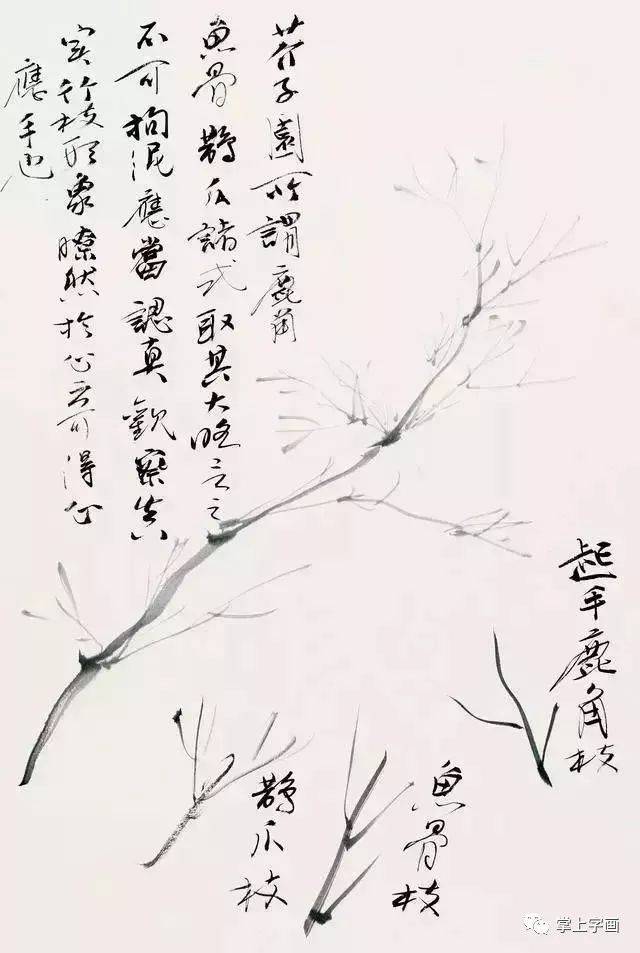 芥子園所謂鹿角
魚骨鵲爪諸式取其大略言之
不可拘泥應當認真觀察真
實竹枝形象瞭然於心方可得心
應手也
起手鹿角枝
魚骨枝
鵲爪枝
掌上字画